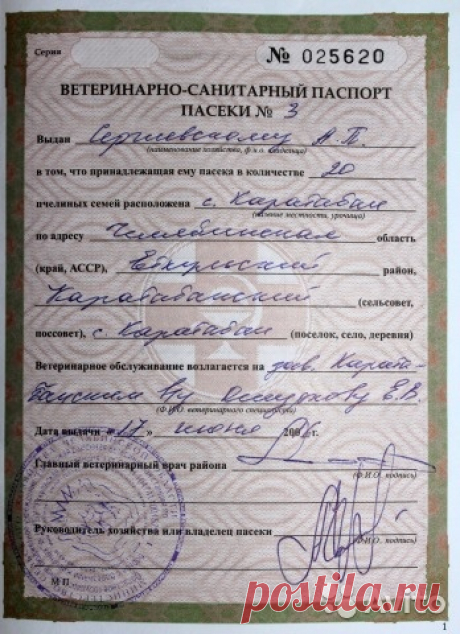 Серия № 025620
ВЕТЕРИНАРНО-САНИТАРНЫЙ ПАСПОРТ
ПАСЕКИ № 3
Выдан Сергиевскому А.П.
(наименование хозяйства, ф.и.о. владельца)
в том, что принадлежащая ему пасека в количестве 20
пчелиных семей расположена с. Каратабан
(название местности, урочища)
по адресу Челябинская область
(край, АССР), Еткульский район,
Каратабанский (сельсовет,
поссовет), с. Каратабан (поселок, село, деревня)
Ветеринарное обслуживание возлагается на зав. Карата-
банским Ву Е.В.
(Ф.И.О. ветеринарного специалиста)
Дата выдачи «17» июня 2006г.
Главный ветеринарный врач района
(Ф.И.О., подпись)
Руководитель хозяйства или владелец пасеки
(Ф.И.О., подпись)
М П
Postila.ru
1